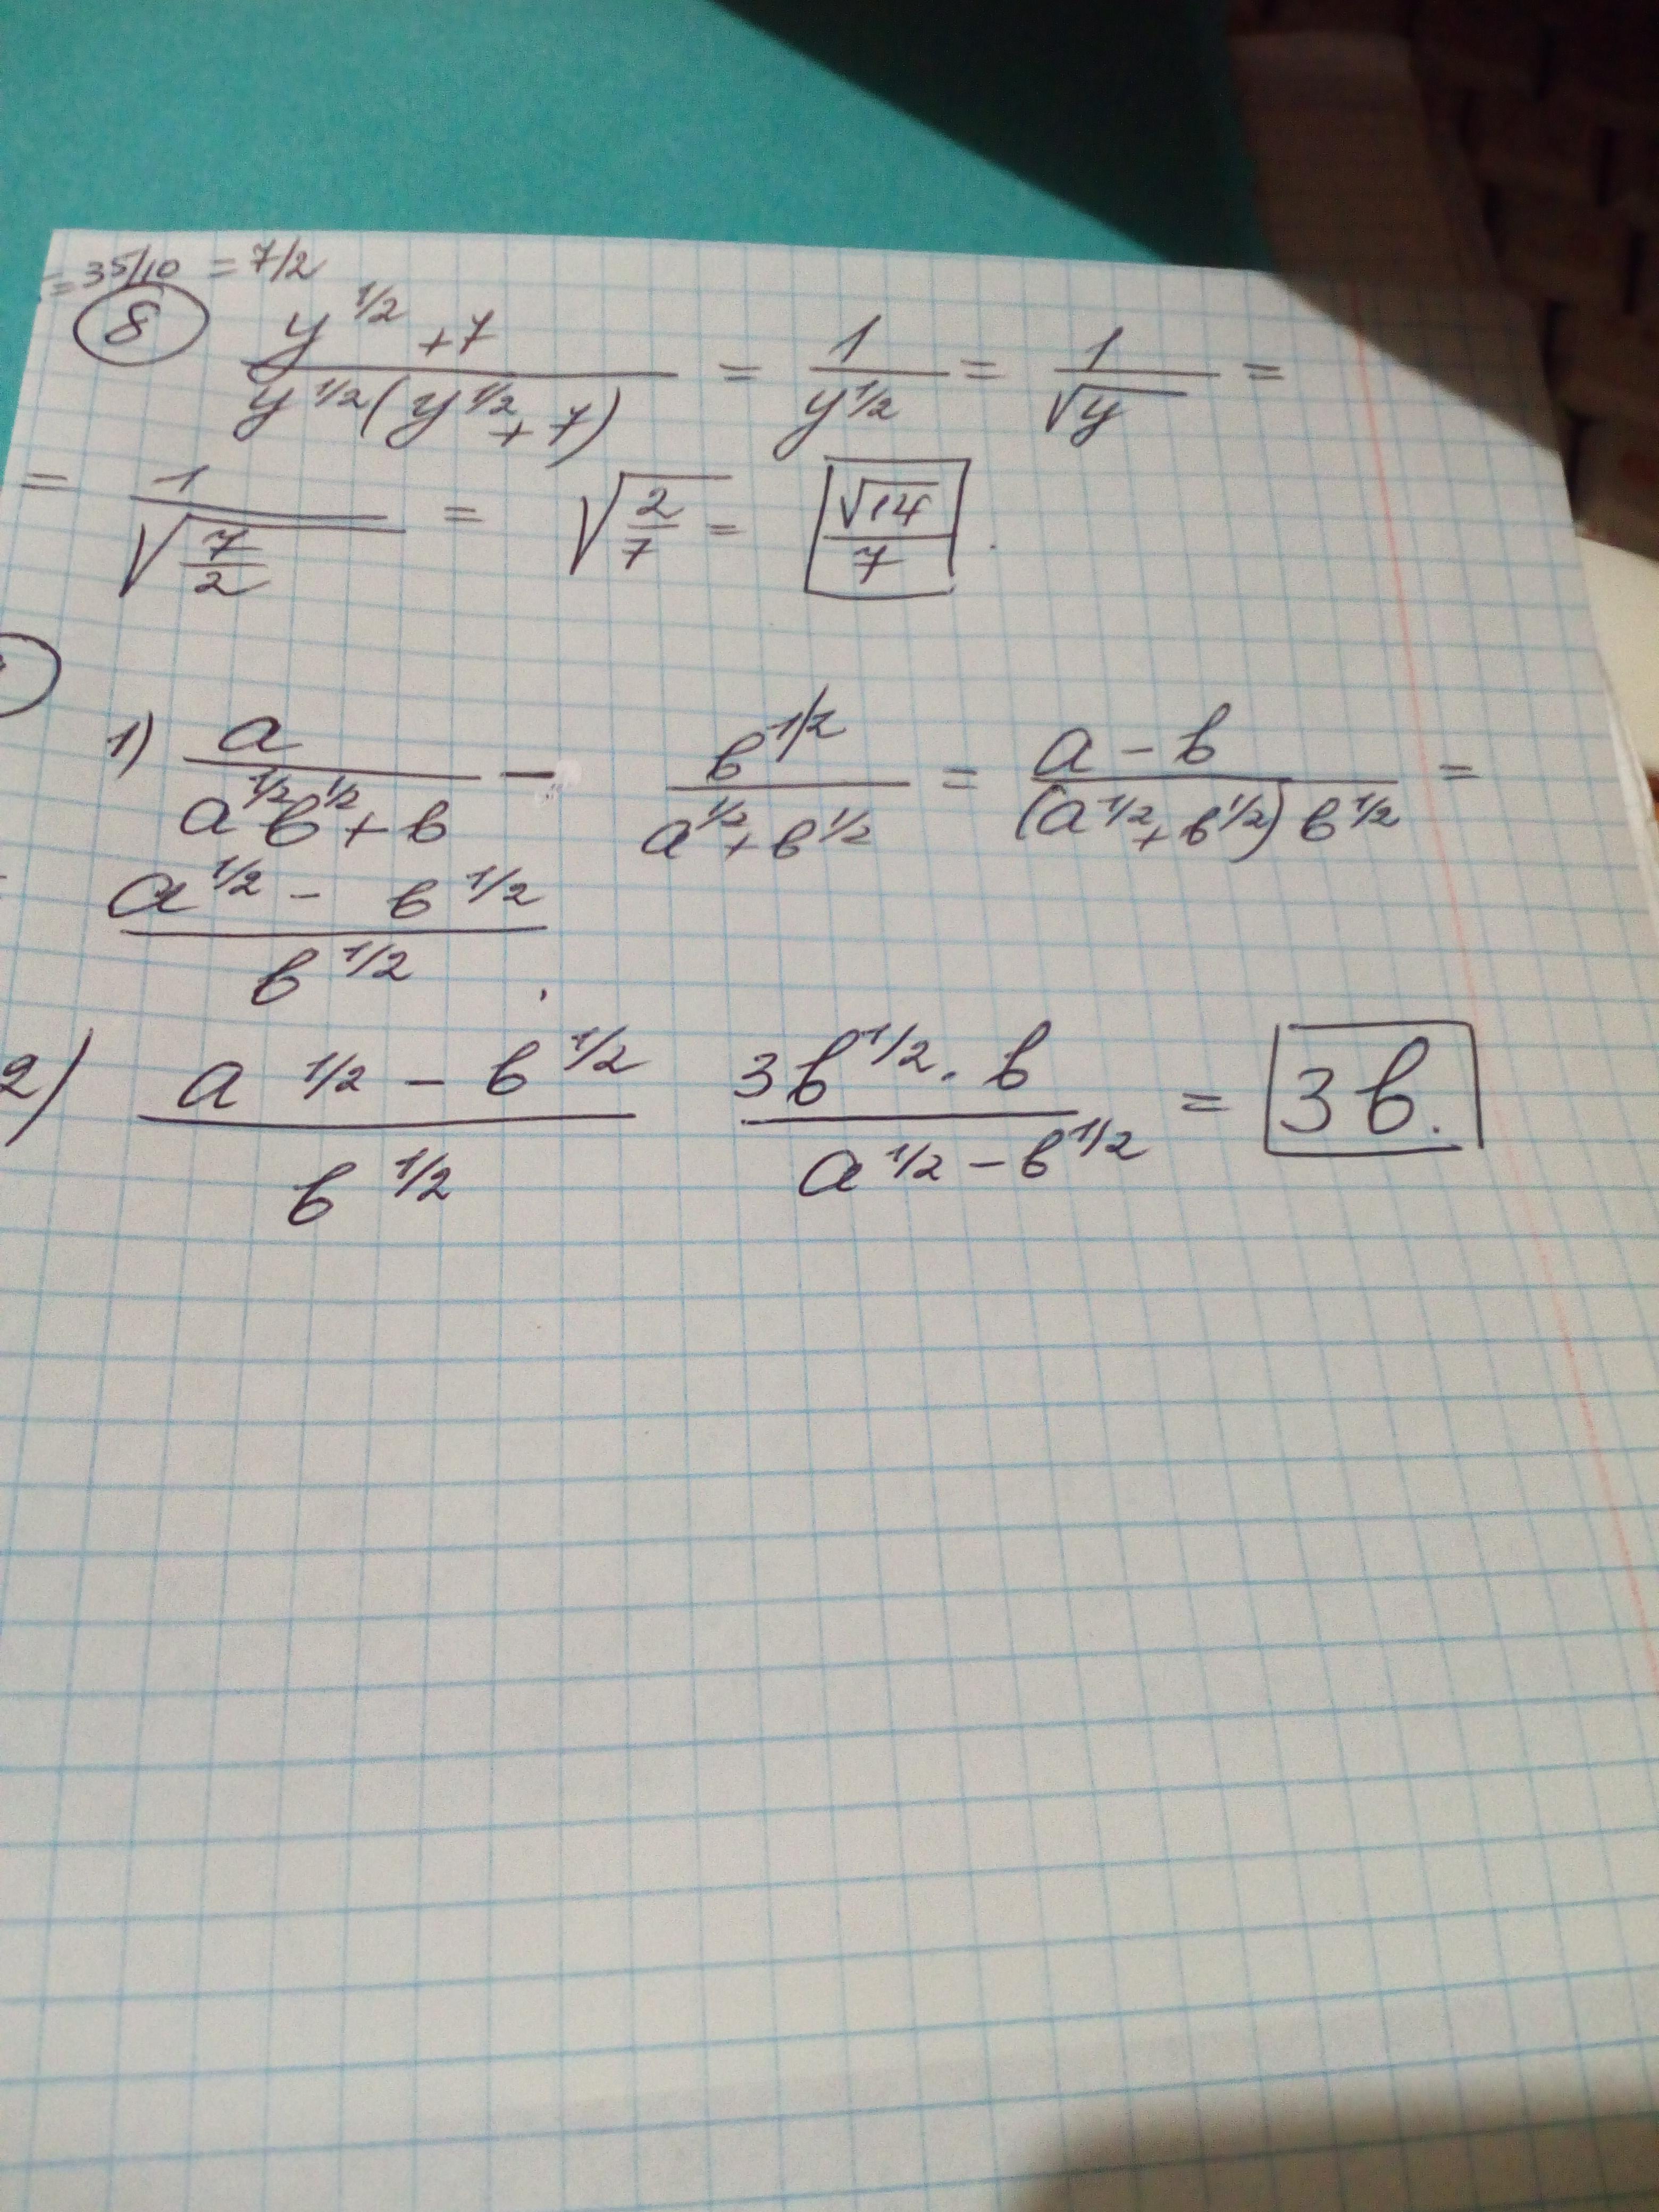 = 35/10 = 7/2
8 (y^1/2 + 7)/(y^1/2 (y^1/2 + 7)) = 1/y^1/2 = 1/√y =
= 1/√(7/2) = √(2/7) = √14/7 .
1) a/(a^1/2 в^1/2 + в) − в^1/2/(a^1/2 + в^1/2) = (a − в)/((a^1/2 + в^1/2) в^1/2) =
(a^1/2 − в^1/2)/в^1/2 .
2) (a^1/2 − в^1/2)/в^1/2 (3в^1/2 · в)/(a^1/2 − в^1/2) = 3в.